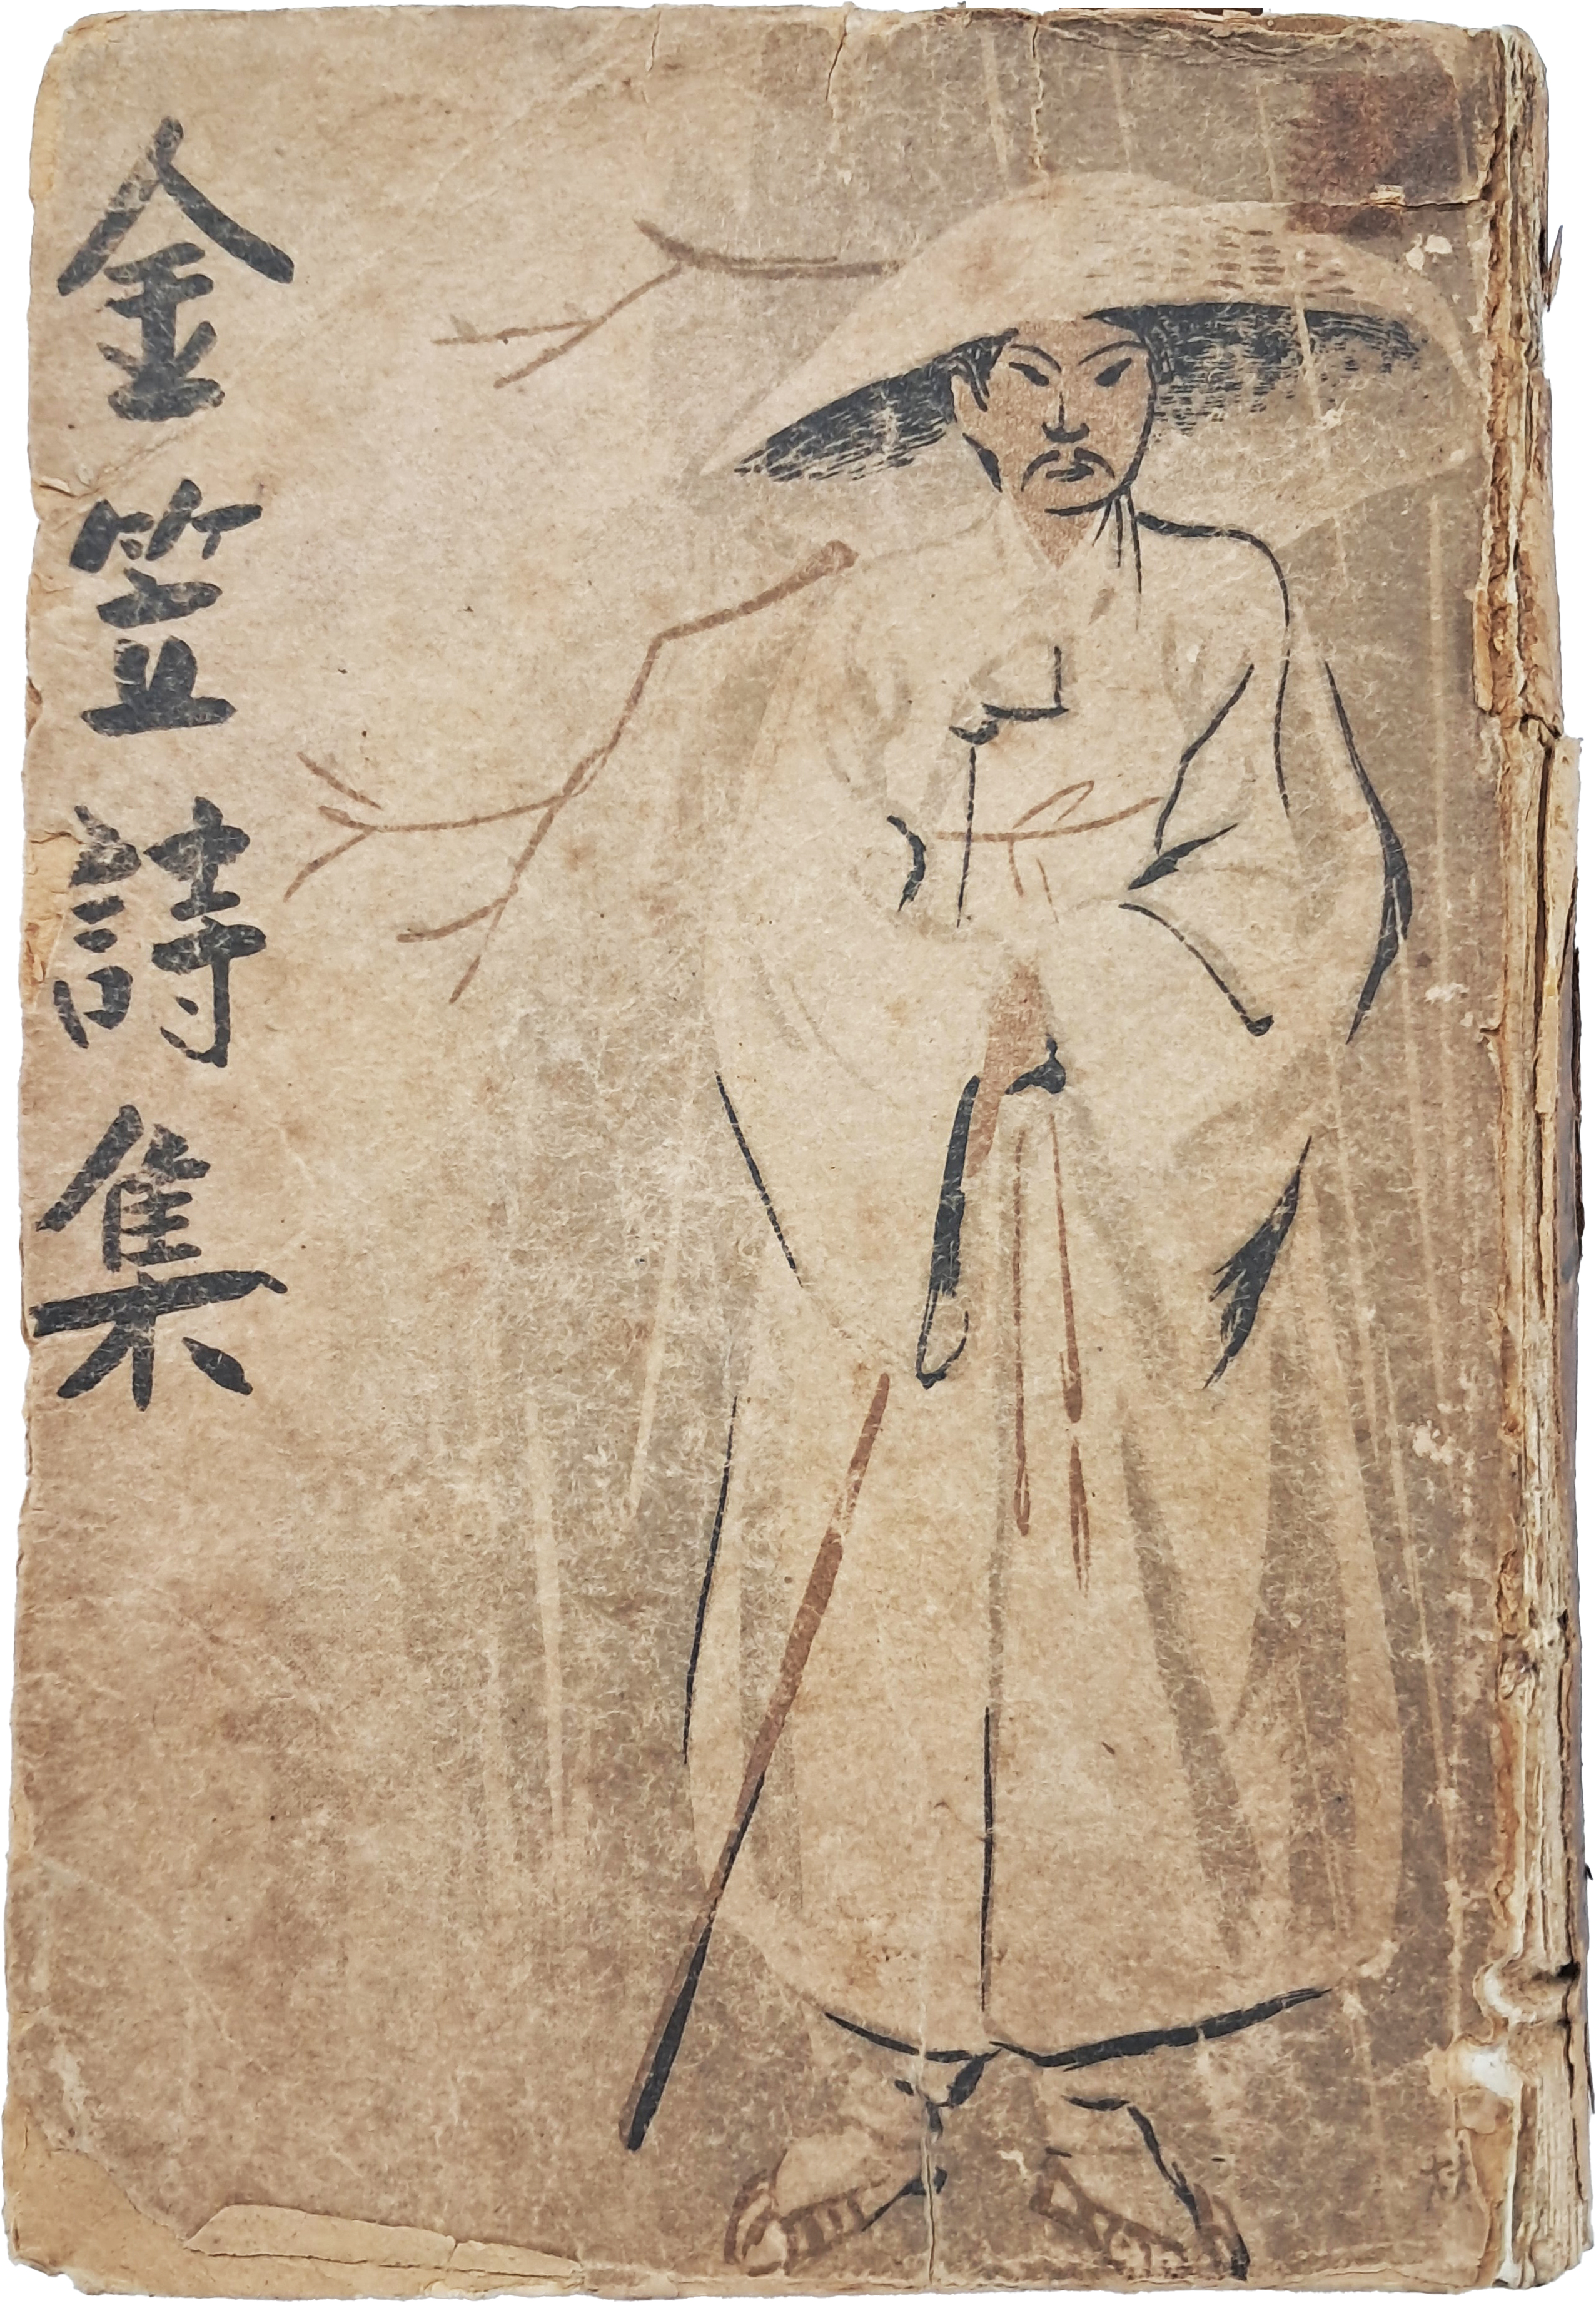 金笠詩集